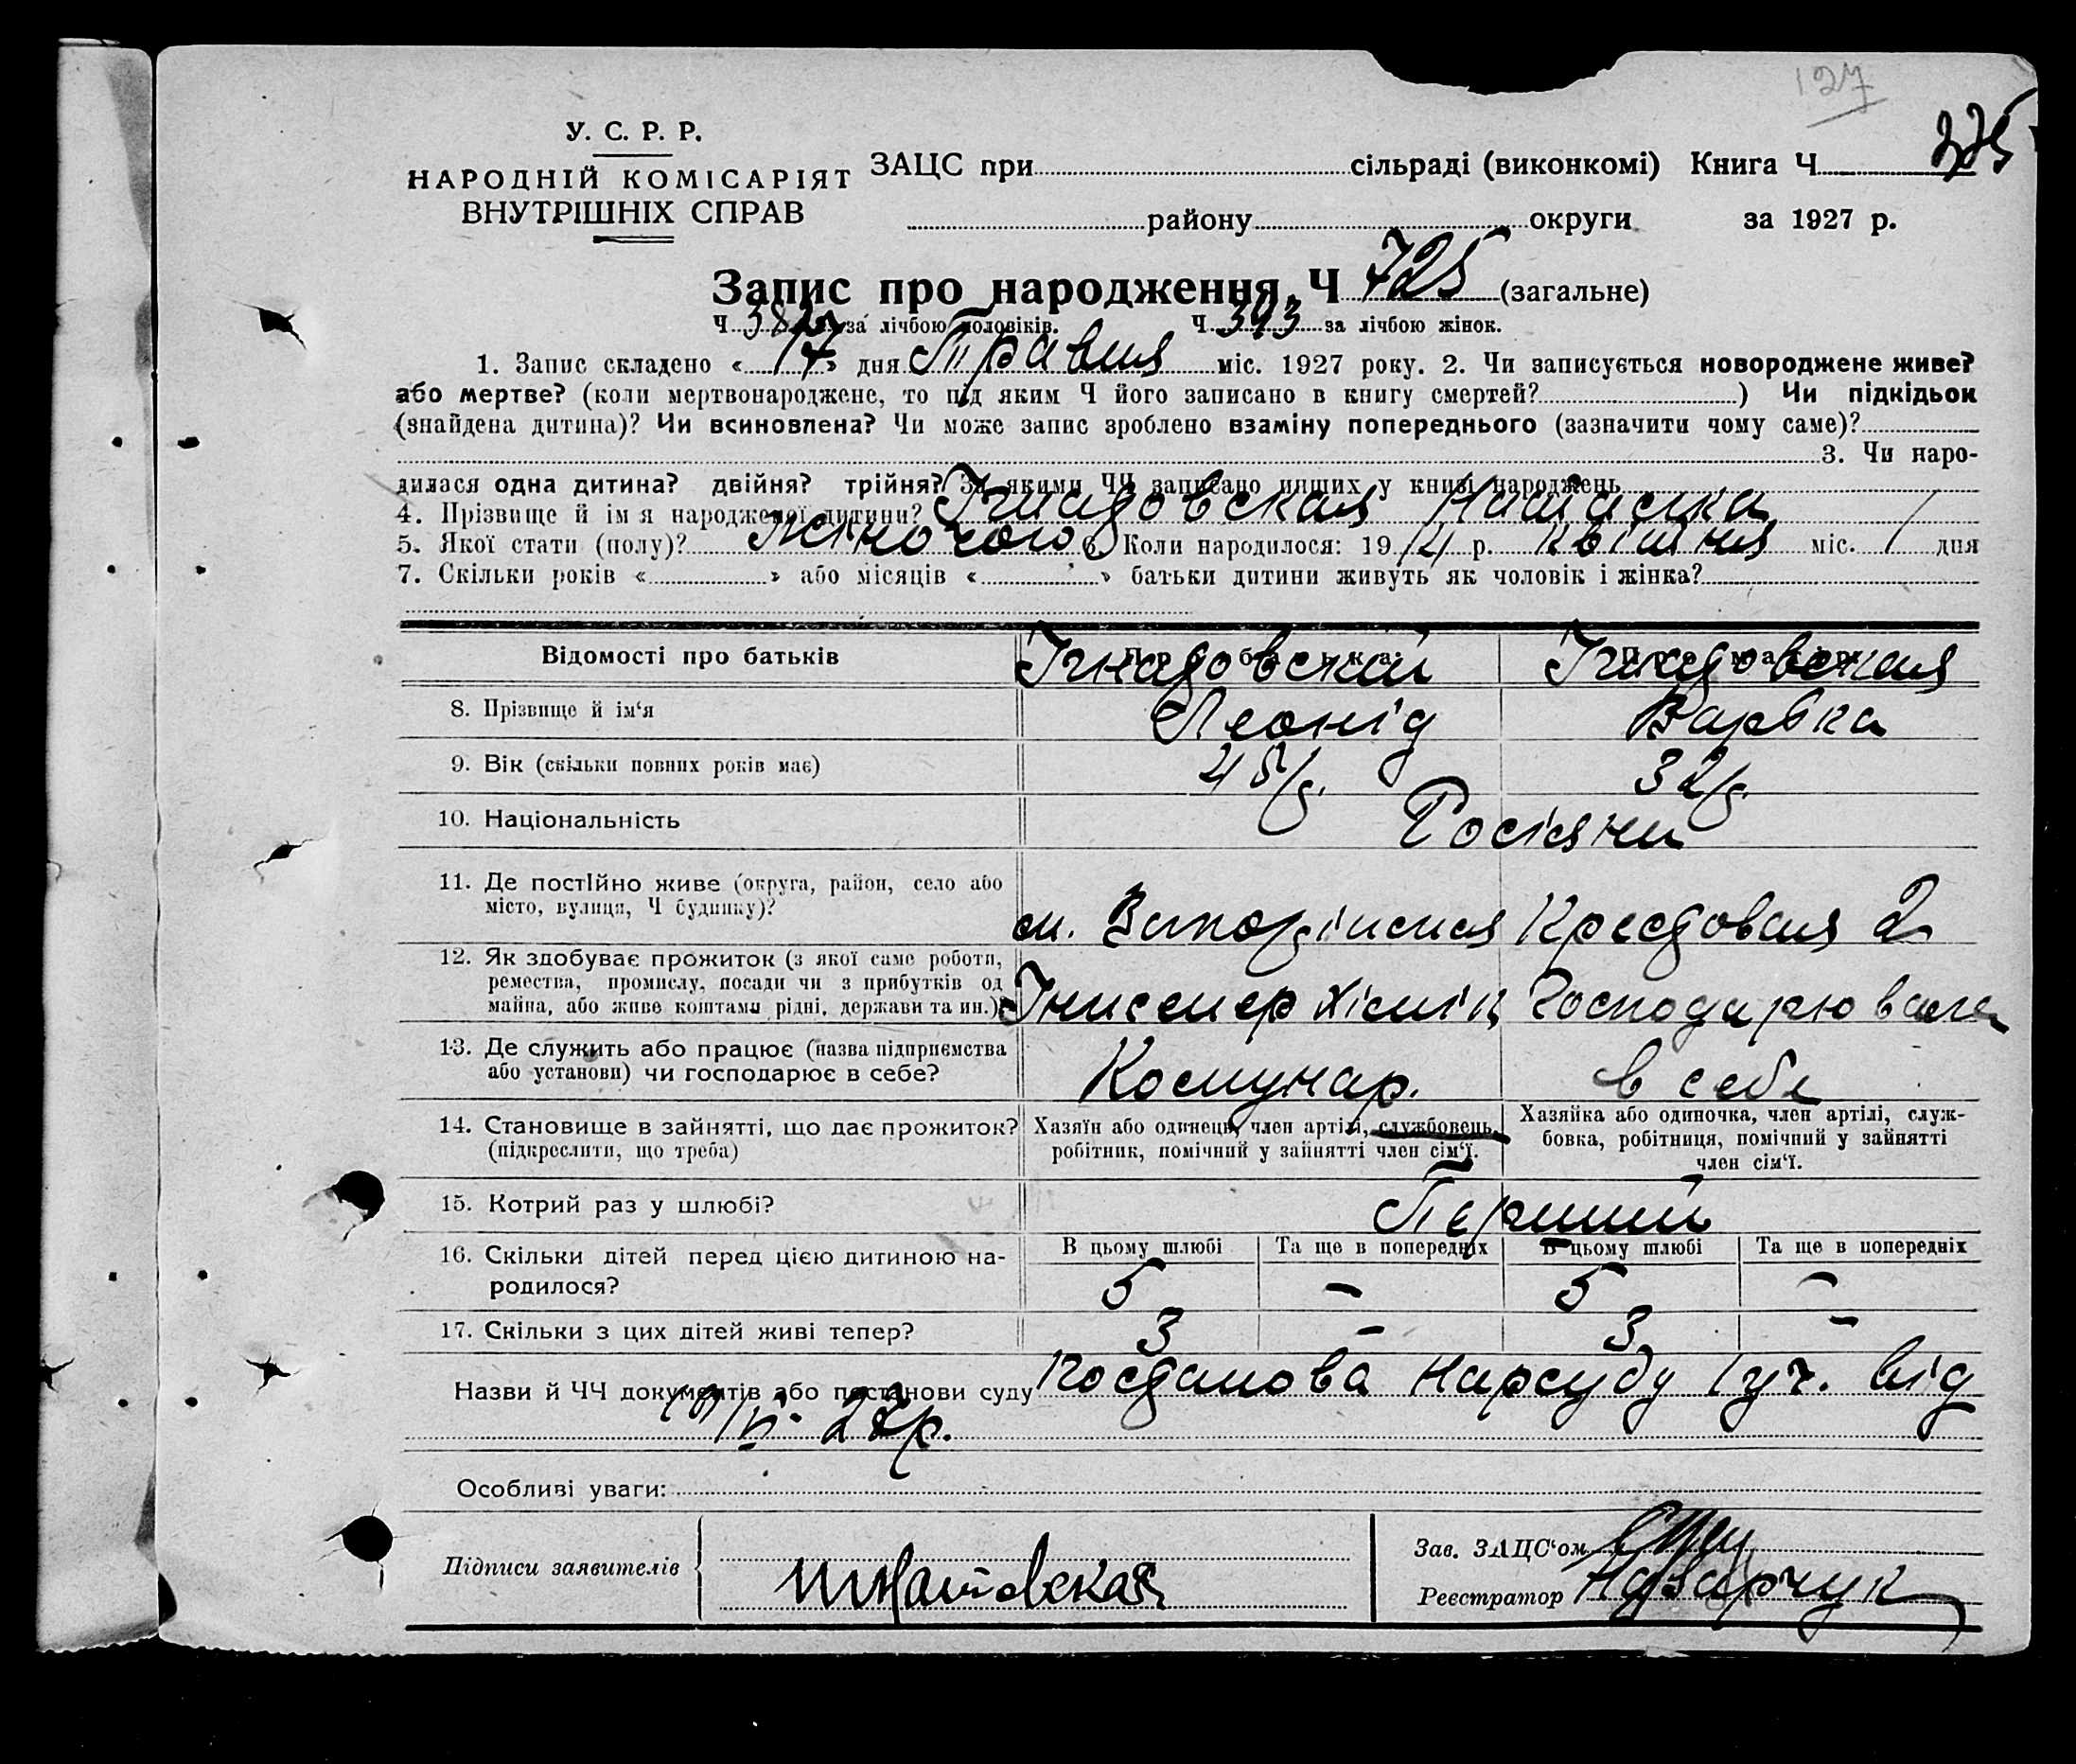 127
325
У. С. Р. Р.
НАРОДНІЙ КОМІСАРІЯТ
ВНУТРІШНІХ СПРАВ
ЗАЦС при сільраді (виконкомі) Книга Ч
району округи за 1927 р.
Запис про народження, Ч 725 (загальне)
Ч за лічбою чоловіків. Ч 393 за лічбою жінок.
1. Запис складено « 17 » дня Травня міс. 1927 року. 2. Чи записується новороджене живе?
або мертве? (коли мертвонароджене, то під яким Ч його записано в книгу смертей? ) Чи підкідьок
(знайдена дитина)? Чи всиновлена? Чи може запис зроблено взаміну попереднього (зазначити чому саме)?
3. Чи наро-
дилася одна дитина? двійня? трійня? За якими ЧЧ записано инших у книзі народжень
4. Прізвище й ім я народженої дитини? Ігнатовская Наталка
5. Якої стати (полу)? Жіночого 6. Коли народилося: 19 р. квітня міс. 1 дня
7. Скільки років « » або місяців « » батьки дитини живуть як чоловік і жінка?
Відомості про батьків Про батька: Про матір:
Ігнатовский Ігнатовская
8. Прізвище й ім‘я Леонід Варвка
9. Вік (скільки повних років має) 45 р. 32 р.
10. Національність Росіяни
11. Де постійно живе (округа, район, село або
місто, вулиця, Ч будинку)? м. Запоріжжя 2
12. Як здобуває прожиток (з якої саме роботи,
ремества, промислу, посади чи з прибутків од
майна, або живе коштами рідні, держави та ин.) Інженер хімік Господарювання
13. Де служить або працює (назва підприємства
або установи) чи господарює в себе? Комунар. в себе
14. Становище в зайнятті, що дає прожиток?
(підкреслити, що треба)
Хазяїн або одинець, член артілі, службовець,
робітник, помічний у зайнятті член сім‘ї.
Хазяйка або одиночка, член артілі, служ-
бовка, робітниця, помічний у зайнятті
член сім‘ї.
15. Котрий раз у шлюбі? Перший
В цьому шлюбі Та ще в попередніх В цьому шлюбі Та ще в попередніх
16. Скільки дітей перед цією дитиною на-
родилося? 5 – 5 –
17. Скільки з цих дітей живі тепер? 3 – 3 –
Назви й ЧЧ документів або постанови суду Постанова Нарсуду 1 уч. від
27 р.
Особливі уваги:
Підписи заявителів Игнатовская
Зав. ЗАЦС‘ом
Реєстратор Назарчук